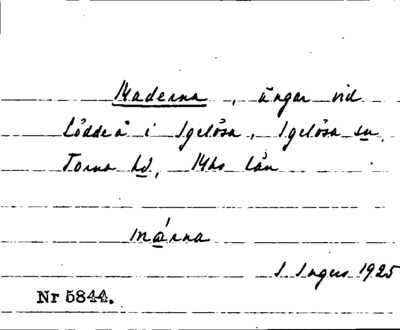 Maderna, ängar vid
Lödde å i Igelösa, Igelösa sn,
Torna hd, Mhs län
mårna
I. Ingers 1925
Nr 5844.